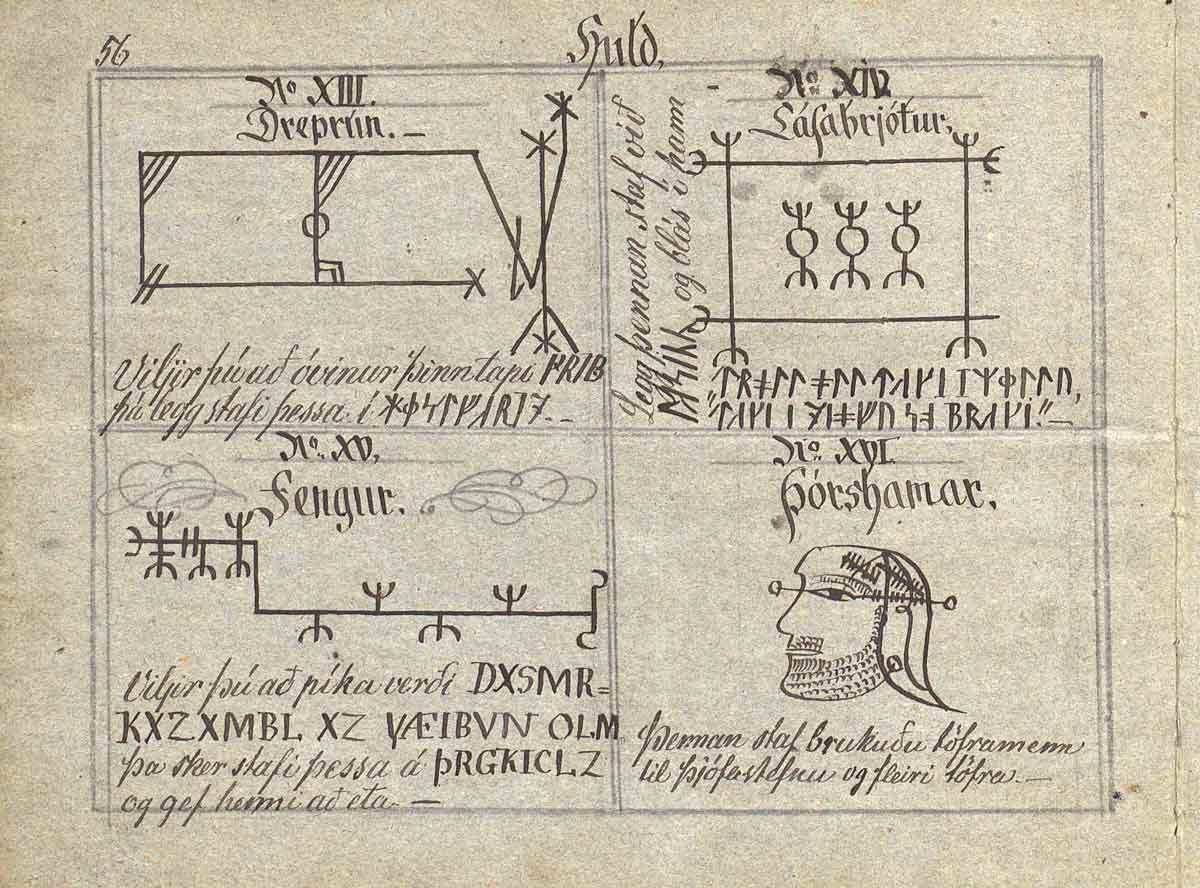 56
Huld,
No XIII.
Dreprún.—
Viljir þú að óvinur þinn tapi
þá legg stafi þessa í
No XIV.
Lásabrjótur,
Legg þennan staf við
og blás í hann
No XV,
Fengur.
Viljir þú að píka verði DXSMR=
KXZ XMBL XZ VÆIBVN OLM
Þa sker stafi þessa á ÞRGKICLZ
og gef henni að eta.—
No XVI.
Þórshamar,
Þennan staf brukuðu töframenn
til þjófastefnu og fleiri töfra.—